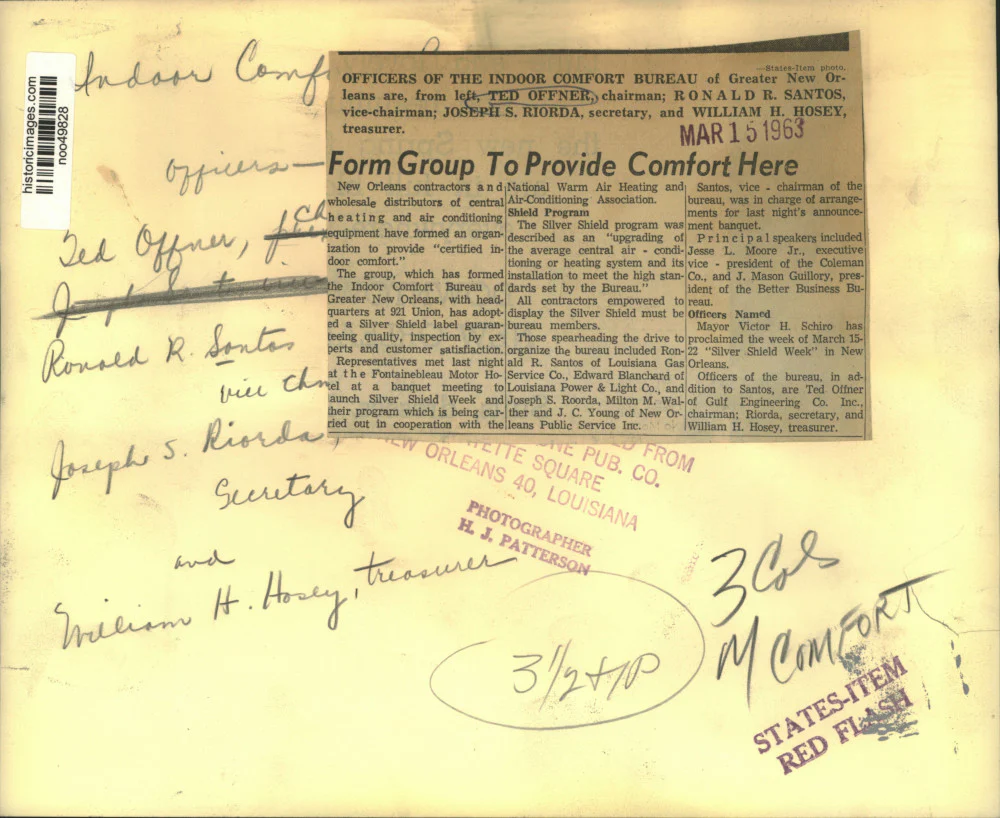 historicimages.com
noo49828
Indoor Comf
officers—
Ted Offner,
Ronald R. Santos
vice Chm
Joseph S. Riorda,
Secretary
and
William H. Hosey, treasurer
—States-Item photo.
OFFICERS OF THE INDOOR COMFORT BUREAU of Greater New Or-
leans are, from left, TED OFFNER, chairman; RONALD R. SANTOS,
vice-chairman; JOSEPH S. RIORDA, secretary, and WILLIAM H. HOSEY,
treasurer.
MAR 15 1963
Form Group To Provide Comfort Here
New Orleans contractors and
wholesale distributors of central
heating and air conditioning
equipment have formed an organ-
ization to provide "certified in-
door comfort."
The group, which has formed
the Indoor Comfort Bureau of
Greater New Orleans, with head-
quarters at 921 Union, has adopt-
ed a Silver Shield label guaran-
teeing quality, inspection by ex-
perts and customer satisfaction.
Representatives met last night
at the Fontainebleau Motor Ho-
tel at a banquet meeting to
launch Silver Shield Week and
their program which is being car-
ried out in cooperation with the
National Warm Air Heating and
Air-Conditioning Association.
Shield Program
The Silver Shield program was
described as an "upgrading of
the average central air - condi-
tioning or heating system and its
installation to meet the high stan-
dards set by the Bureau."
All contractors empowered to
display the Silver Shield must be
bureau members.
Those spearheading the drive to
organize the bureau included Ron-
ald R. Santos of Louisiana Gas
Service Co., Edward Blanchard of
Louisiana Power & Light Co., and
Joseph S. Roorda, Milton M. Wal-
ther and J. C. Young of New Or-
leans Public Service Inc.
Santos, vice - chairman of the
bureau, was in charge of arrange-
ments for last night's announce-
ment banquet.
Principal speakers included
Jesse L. Moore Jr., executive
vice - president of the Coleman
Co., and J. Mason Guillory, pres-
ident of the Better Business Bu-
reau.
Officers Named
Mayor Victor H. Schiro has
proclaimed the week of March 15-
22 "Silver Shield Week" in New
Orleans.
Officers of the bureau, in ad-
dition to Santos, are Ted Offner
of Gulf Engineering Co. Inc.,
chairman; Riorda, secretary, and
William H. Hosey, treasurer.
FROM
PUB. CO.
SQUARE
NEW ORLEANS 40, LOUISIANA
PHOTOGRAPHER
H. J. PATTERSON
3 Cols
M COMFORT
3 1/2 + 1P
STATES-ITEM
RED FLASH